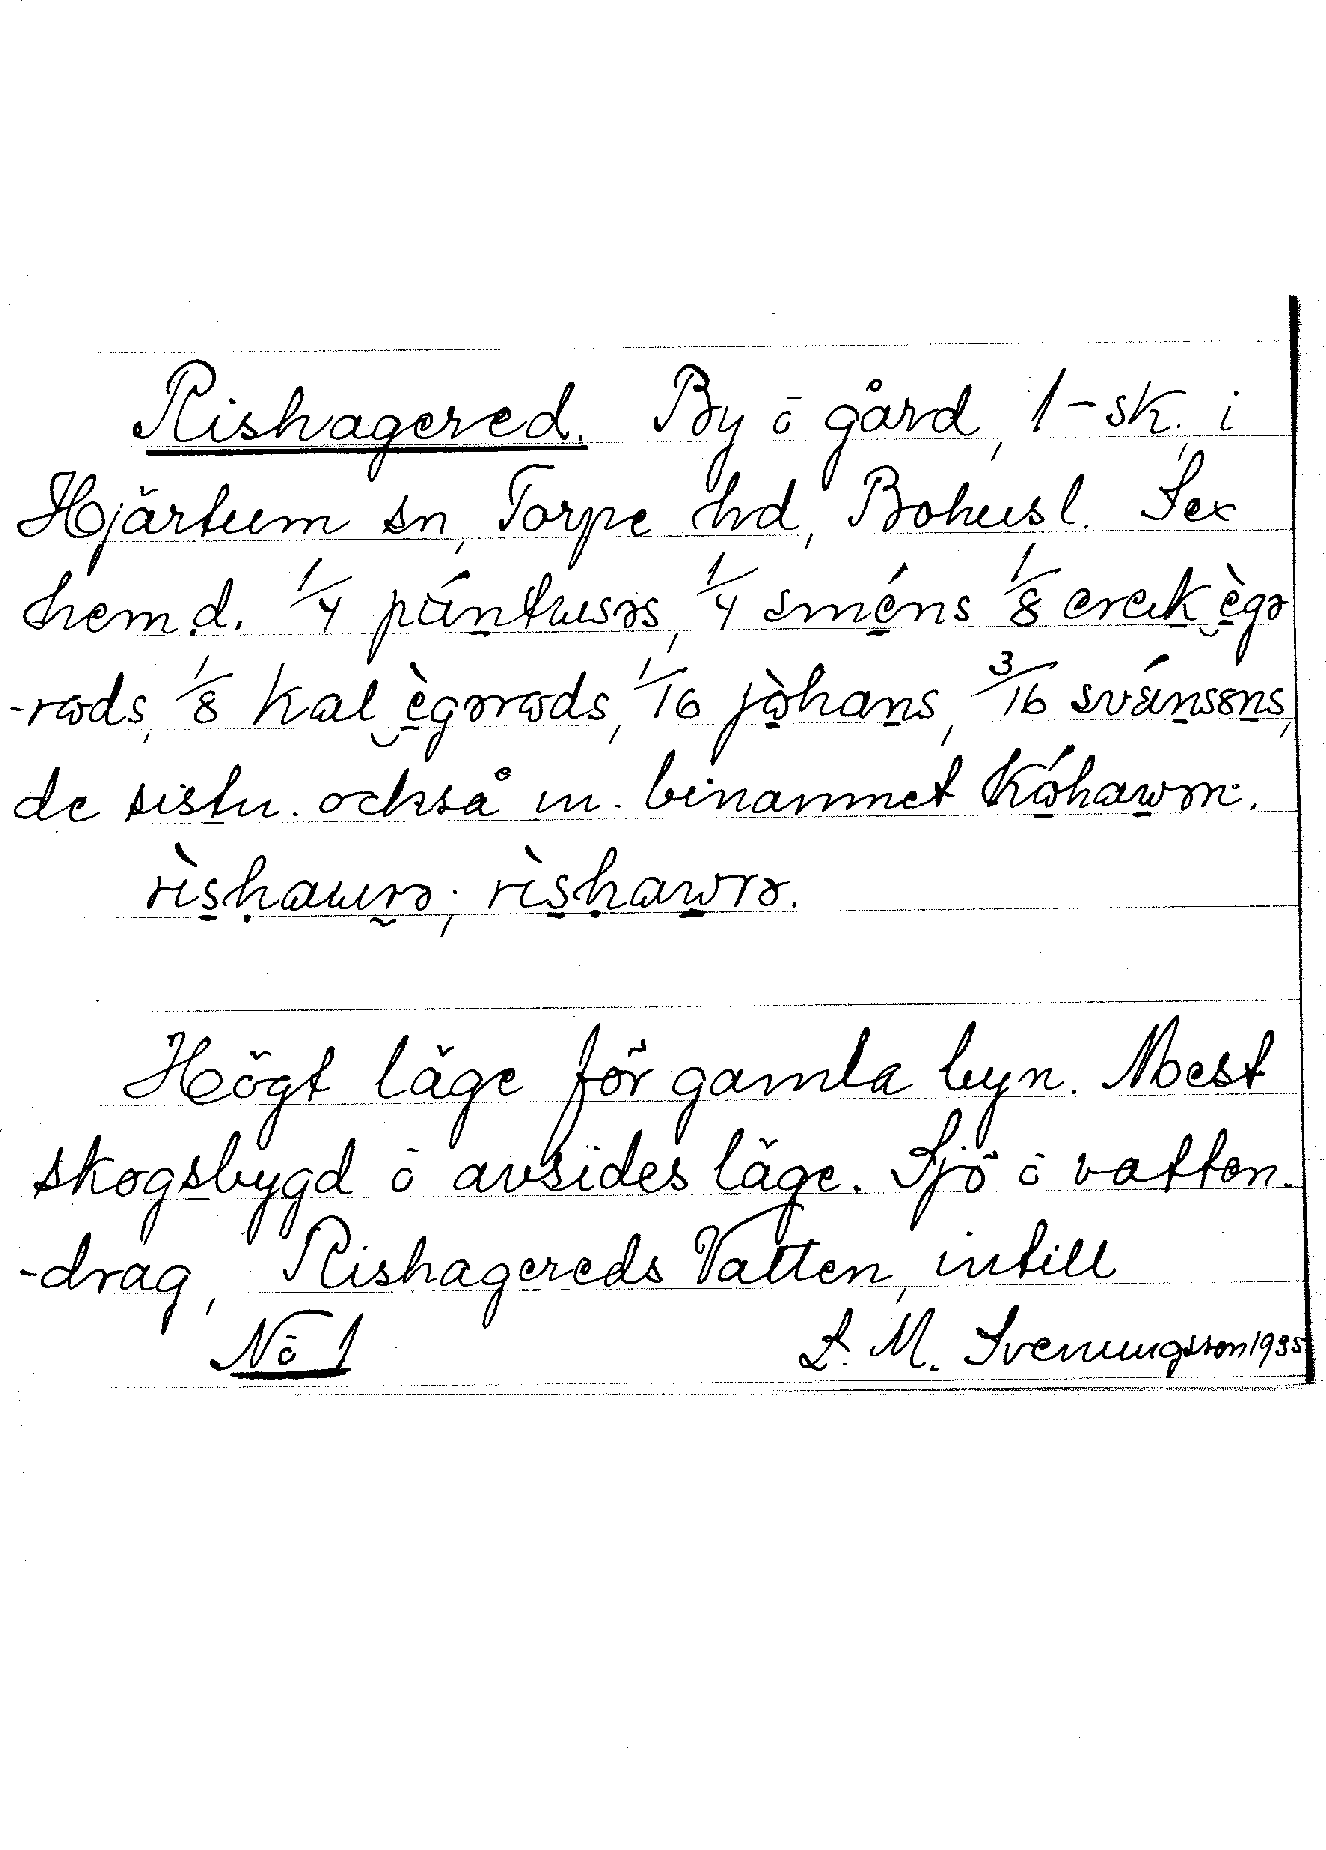 Rishagered. By ō gård, 1-sk., i
Hjärtum sn, Torpe hd, Bohusl. Sex
hem.d. 1/4 pántusɘs, 1/4 sméns 1/8 ererk ègɘ
-rɷds, 1/8 kal ègɘrɷds, 1/16 jɷ̀hans, 3/16 svánsɘns,
de sistn. också m. binamnet kɷ́hawɘn.
rìshawrɘ; rìshawrɘ.
Högt läge för gamla byn. Mest
skogsbygd ō avsides läge. Sjö ō vatten-
-drag, Rishagereds Vatten, intill
No 1 L. M. Svenungsson 1935